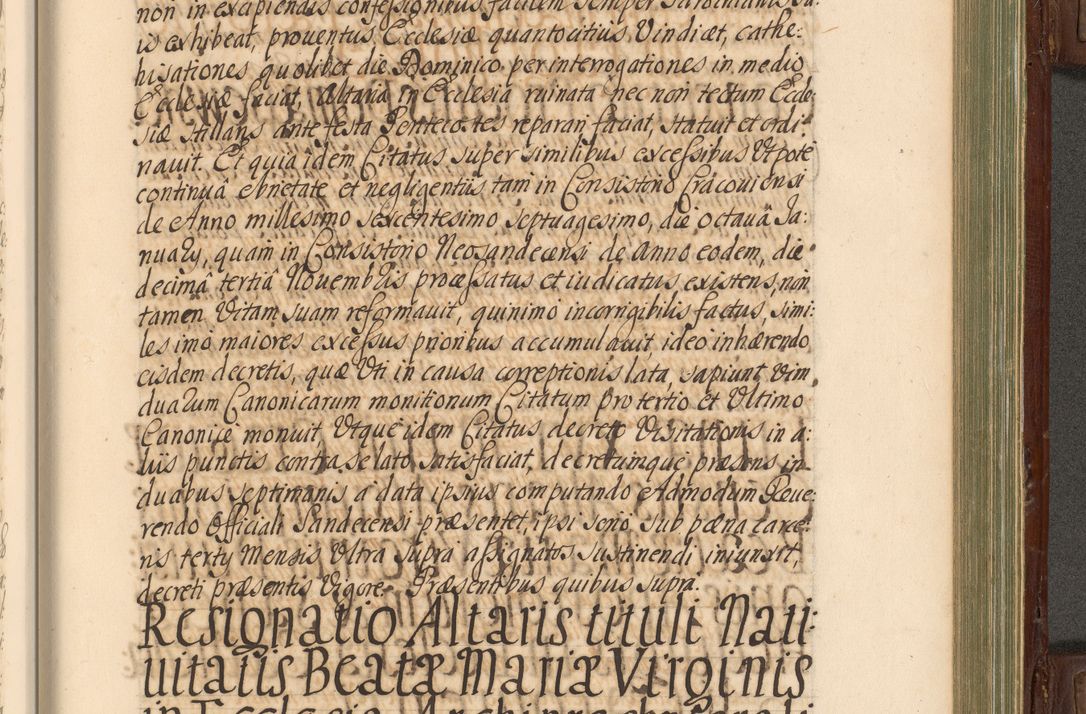 non in excipiendis confessionibus facilem semper
is exhibeat, proventus Ecclesiæ quantocitius Vindicet, cathe:
hisationes quolibet die Dominico per interrogationes in medio
Ecclesiæ faciat, Altaria in Ecclesia ruinata nec non tectum Eccle:
siæ stillans ante festa Pentecostes reparari faciat, statuit et ordi:
nauit. Et quia idem Citatus super similibus excessibus Vtpote
continuâ ebrietate et negligentiis tam in Consistorio Cracouiensi
de Anno millesimo sexcentesimo septuagesimo, die octauâ Ja:
nuary, quam in Consistorio Neosandecensi de Anno eodem, die
decimâ tertiâ Nouembris processatus et iudicatus existens, non
tamen Vitam suam reformauit, quinimo incorrigibilis factus, simi:
les imo maiores excessus prioribus accumulauit, ideo inhærendo
eisdem decretis, quæ Vti in causa correptionis lata, sapiunt Vim
duarum Canonicarum monitionum Citatum pro tertio et Vltimo
Canonice monuit, Vtque idem Citatus decreto Visitationis in a:
liis punctis contra se lato satisfaciat, decretumque præsens in
duabus septimanis a data ipsius computando Admodum Reue:
rendo Officiali Sandecensi præsentet, ipsi serio sub pæna carce:
ris tertÿ Mensis Vltra supra assignatos sustinendi iniunxit,
decreti præsentis Vigore. Præsentibus quibus supra.
Resignatio Altaris tituli Nati:
uitatis Beatæ Mariæ Virginis
in Ecclesia Archipræsbyterali